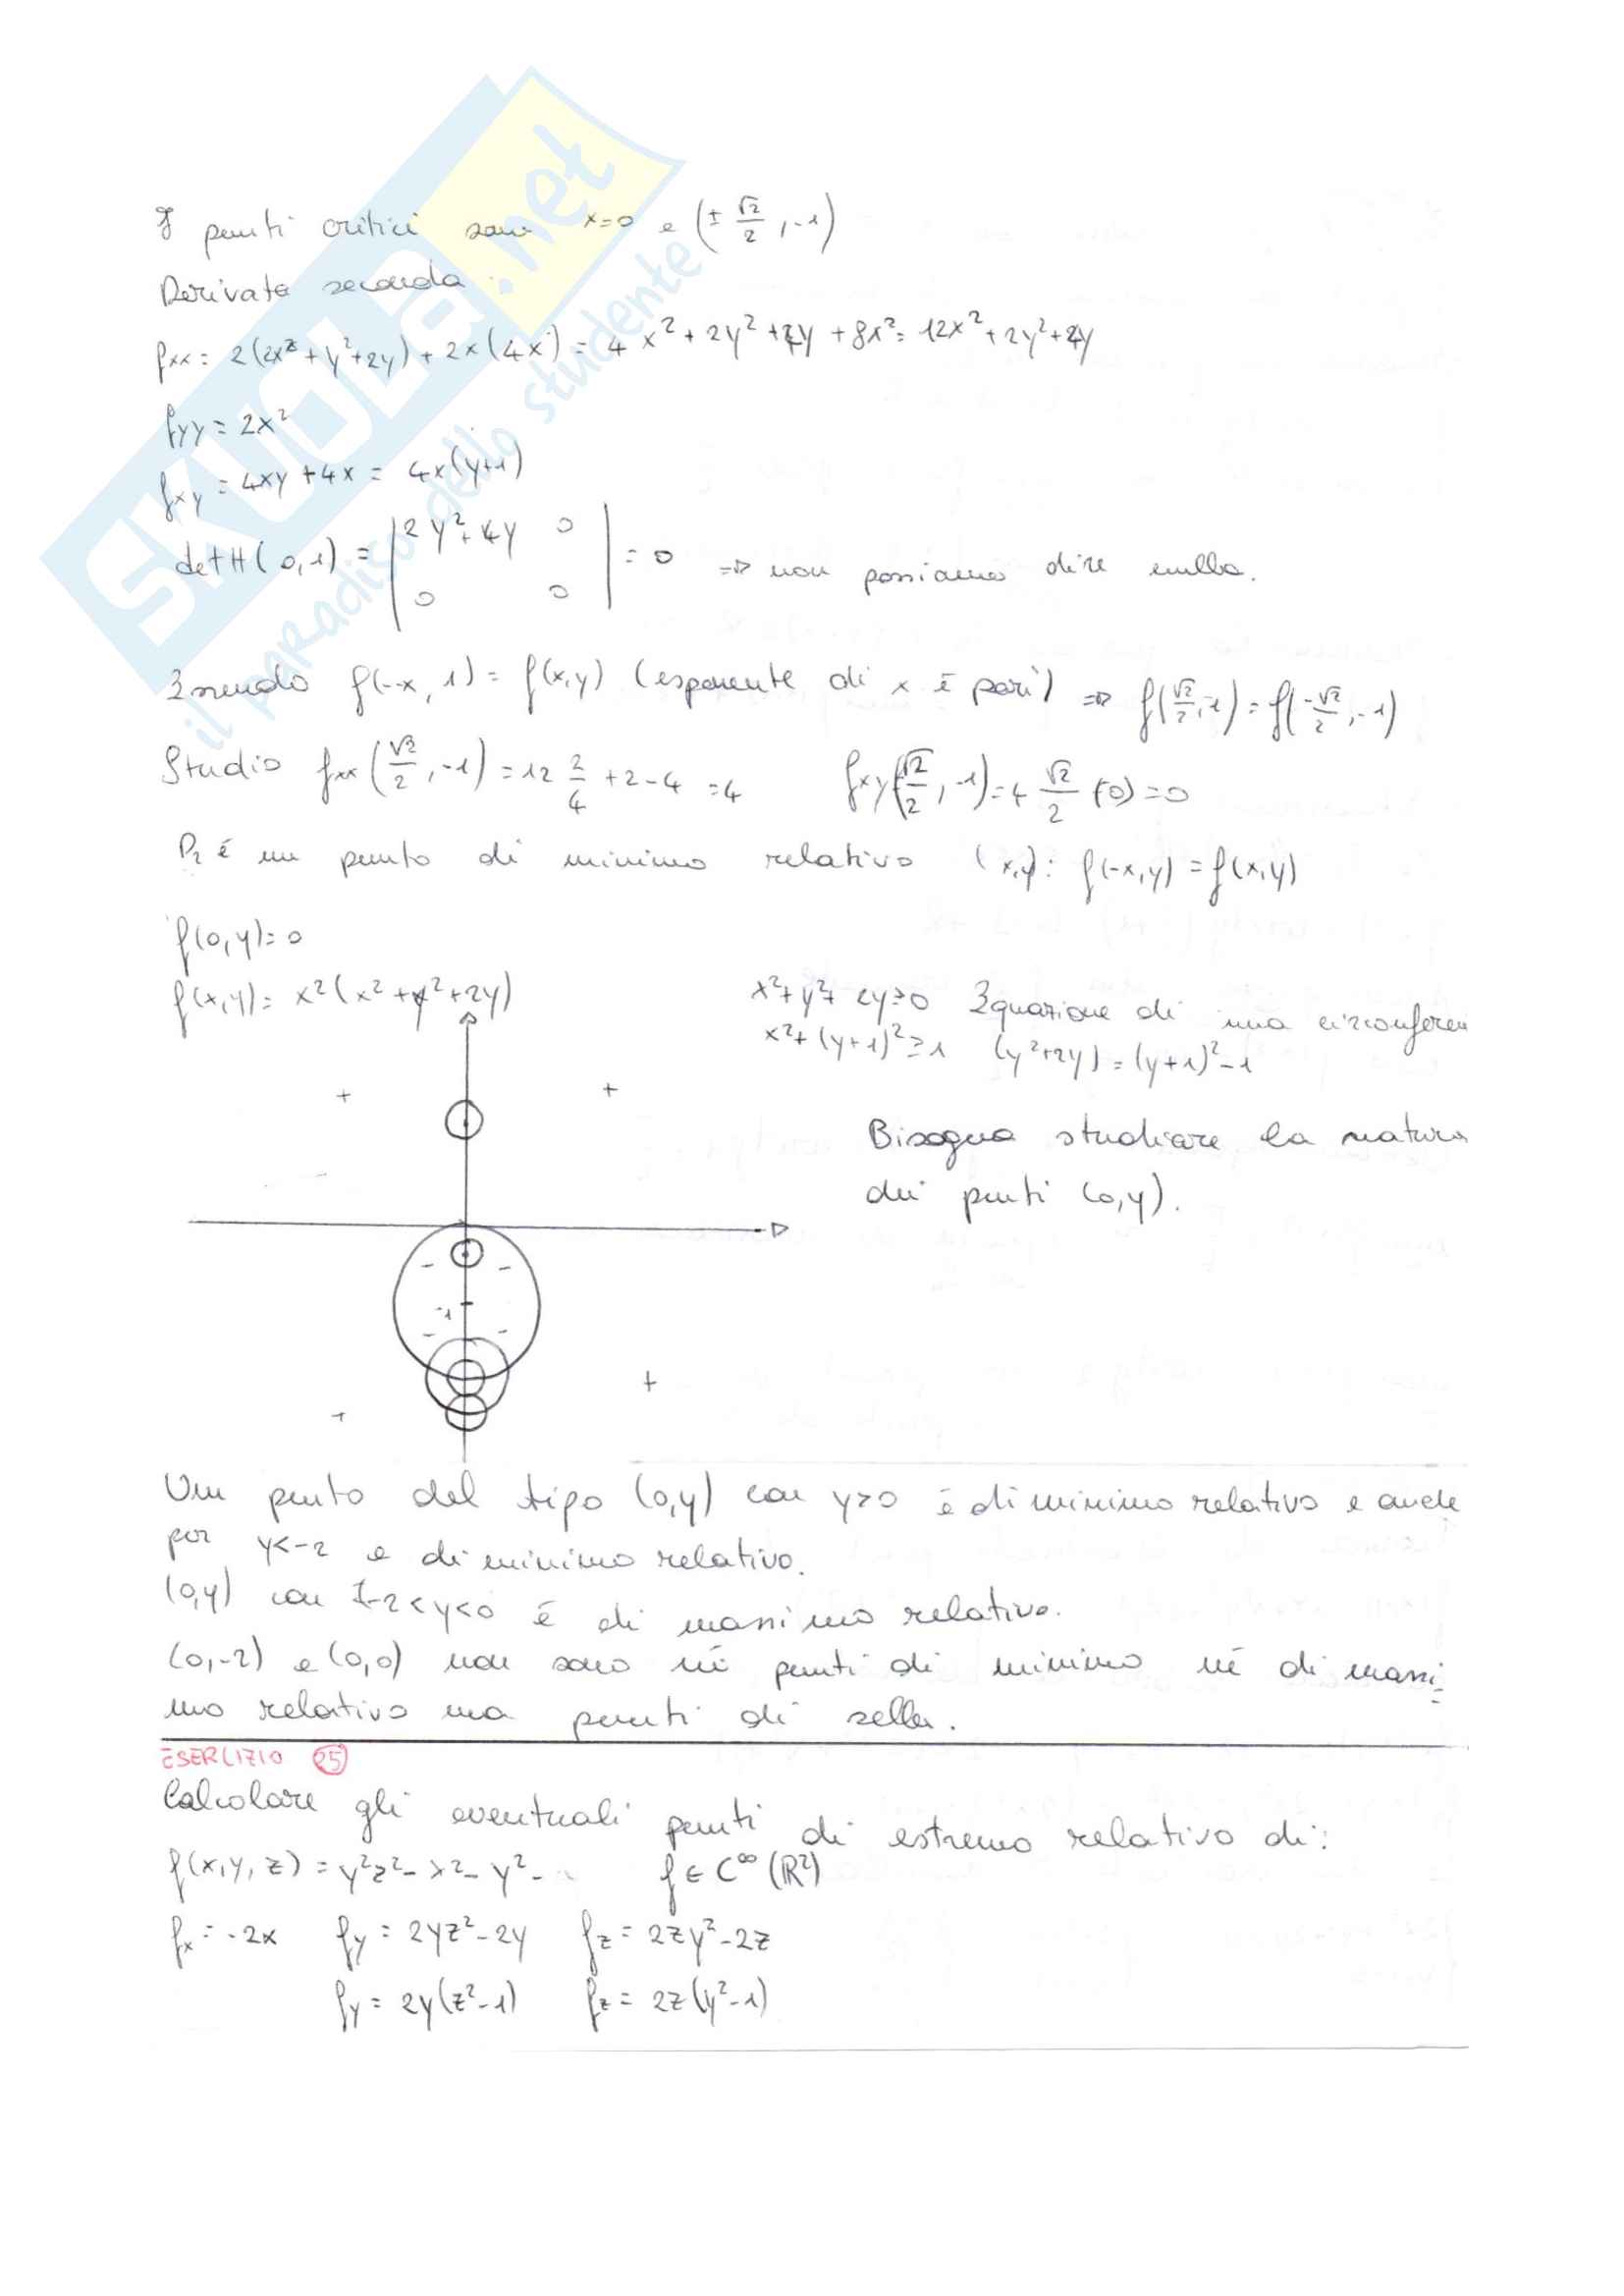 SKUOLA.net
il paradiso dello studente
I punti critici sono x=0 e (± √2/2, -1)
Derivata seconda:
fxx = 2(2x²+y²+2y) + 2x(4x) = 4x²+2y²+4y+8x² = 12x²+2y²+4y
fyy = 2x²
fxy = 4xy+4x = 4x(y+1)
det H(0,1) = | 2y²+4y 0 | = 0 ⇒ non possiamo dire nulla.
| 0 0 |
Essendo f(-x, 1) = f(x,y) (esponente di x è pari) ⇒ f(√2/2, -1) = f(-√2/2, -1)
Studio fxx(√2/2, -1) = 12 2/4 + 2 - 4 = 4 fxy(√2/2, -1) = 4 √2/2 (0) = 0
P2 è un punto di minimo relativo (x,y): f(-x,y) = f(x,y)
f(0,y) = 0
f(x,y) = x²(x²+y²+2y) x²+y²+2y≥0 Equazione di una circonferen
x²+(y+1)²≥1 (y²+2y) = (y+1)²-1
+ +
Bisogna studiare la natura
dei punti (0,y).
- -
-1
- -
+
+
Un punto del tipo (0,y) con y>0 è di minimo relativo e anche
per y<-2 e di minimo relativo.
(0,y) con -2<y<0 è di massimo relativo.
(0,-2) e (0,0) non sono nè punti di minimo nè di massi=
mo relativo ma punti di sella.
ESERCIZIO 25
Calcolare gli eventuali punti di estremo relativo di:
f(x,y,z) = y²z²-x²-y²- f∈C^∞(R²)
fx = -2x fy = 2yz²-2y fz = 2zy²-2z
fy = 2y(z²-1) fz = 2z(y²-1)